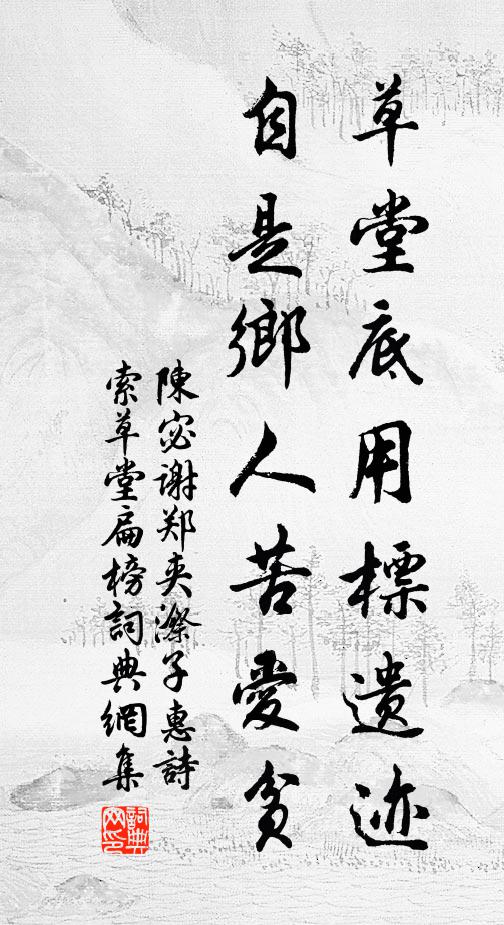 草堂底用標遺迹
自是鄉人苦愛貧
陳宓谢郑夹漈子惠詩
索草堂扁榜詞典網集
詞典网印